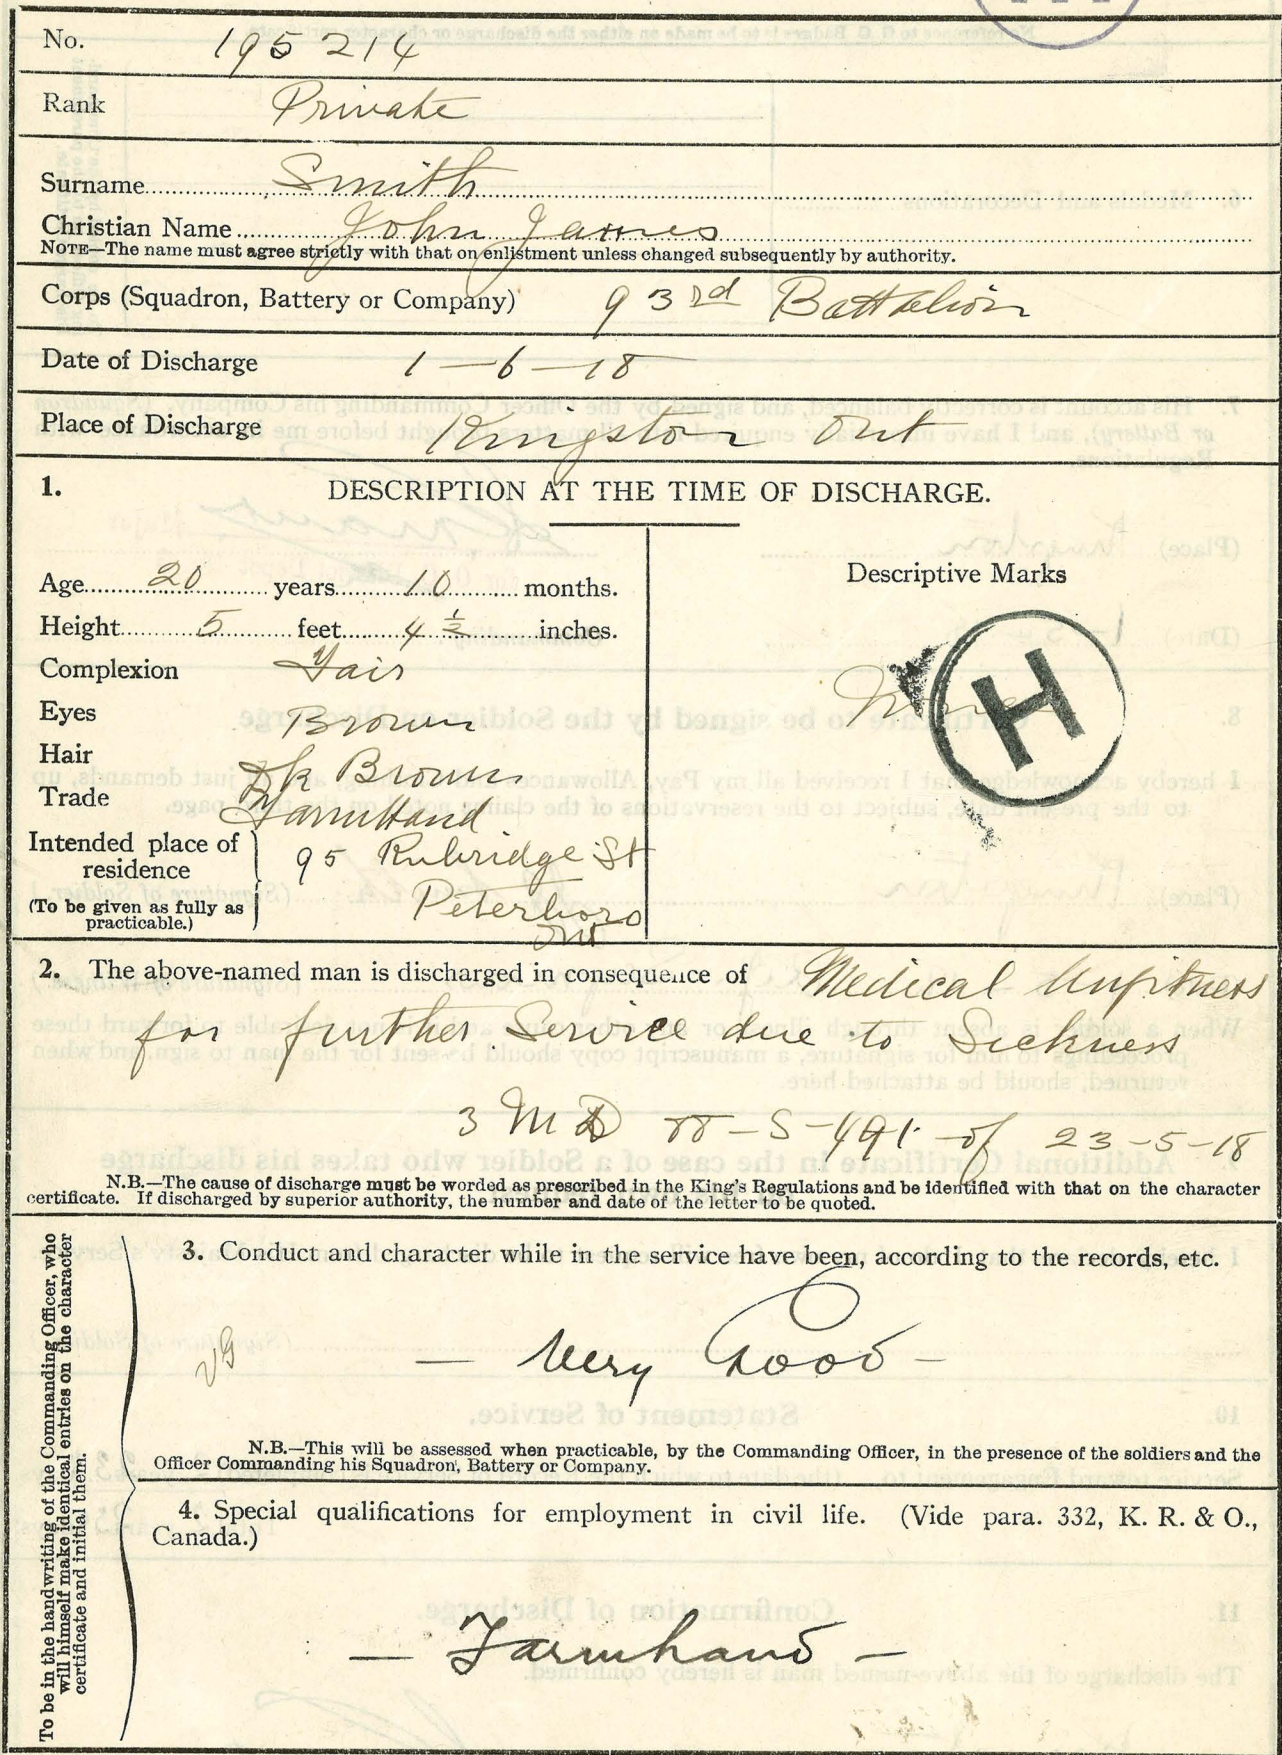 No. 195214
Rank Private
Surname Smith
Christian Name John James
NOTE—The name must agree strictly with that on enlistment unless changed subsequently by authority.
Corps (Squadron, Battery or Company) 93rd Battalion
Date of Discharge 1-6-18
Place of Discharge Kingston Ont
1. DESCRIPTION AT THE TIME OF DISCHARGE.
Age 20 years 10 months.
Height 5 feet 4 ½ inches.
Complexion Fair
Eyes Brown
Hair Dk Brown
Trade Farm Hand
Intended place of residence 95 Rubridge St
(To be given as fully as practicable.) Peterboro
Ont
Descriptive Marks
None
H
2. The above-named man is discharged in consequence of Medical Unfitness
for further Service due to Sickness
3 MD 88-S-491 of 23-5-18
N.B.—The cause of discharge must be worded as prescribed in the King's Regulations and be identified with that on the character
certificate. If discharged by superior authority, the number and date of the letter to be quoted.
To be in the handwriting of the Commanding Officer, who
will himself make identical entries on the character
certificate and initial them.
3. Conduct and character while in the service have been, according to the records, etc.
VG
— Very Good —
N.B.—This will be assessed when practicable, by the Commanding Officer, in the presence of the soldiers and the
Officer Commanding his Squadron, Battery or Company.
4. Special qualifications for employment in civil life. (Vide para. 332, K. R. & O.,
Canada.)
— Farmhand —